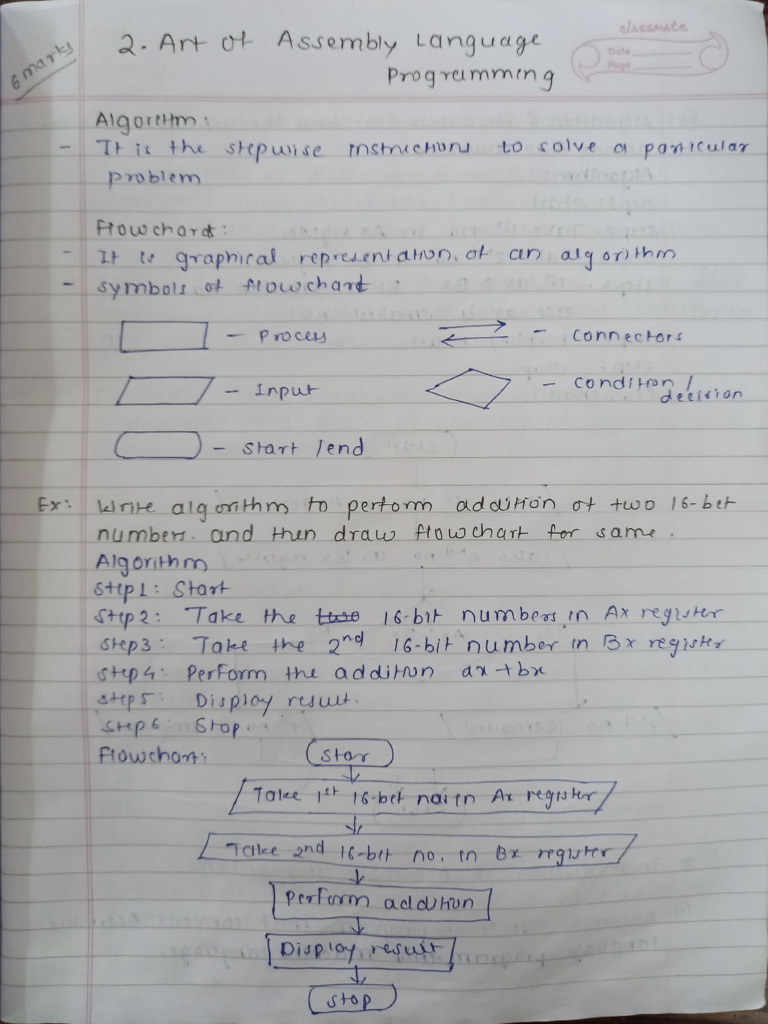 6 marks
2. Art of Assembly Language
Programming
classmate
Date
Page
Algorithm:
- It is the stepwise instructions to solve a particular
problem
Flowchart:
- It is graphical representation of an algorithm
- symbols of flowchart:
- Process
- connectors
- Input
- condition /
decision
- start /end
Ex: Write algorithm to perform addition of two 16-bit
numbers. and then draw flowchart for same.
Algorithm
Step1: Start
Step2: Take the two 16-bit numbers in Ax register
Step3: Take the 2nd 16-bit number in Bx register
step4: Perform the addition ax+bx
step5: Display result.
Step6: Stop.
Flowchart:
Start
Take 1st 16-bit no. in Ax register
Take 2nd 16-bit no. in Bx register
Perform addition
Display result
stop